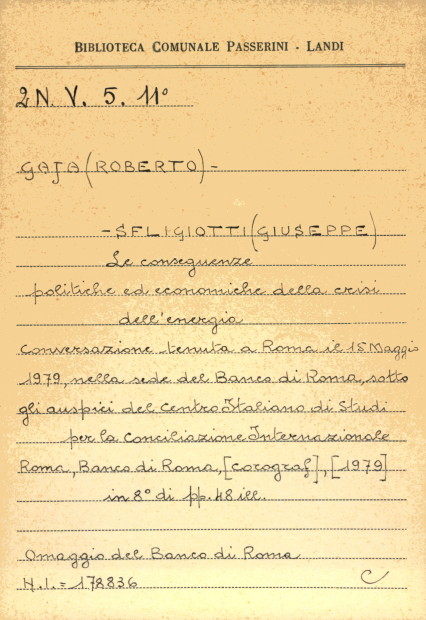 BIBLIOTECA COMUNALE PASSERINI - LANDI
2N. V. 5. 11°
GAJA (ROBERTO) -
- SFLIGIOTTI (GIUSEPPE)
Le conseguenze
politiche ed economiche della crisi
dell'energia
conversazione tenuta a Roma il 15 Maggio
1979, nella sede del Banco di Roma, sotto
gli auspici del Centro Italiano di Studi
per la Conciliazione Internazionale
Roma, Banco di Roma, [Corograf], [1979]
in 8° di pp. 48 ill.
Omaggio del Banco di Roma
N.I. = 178836
C